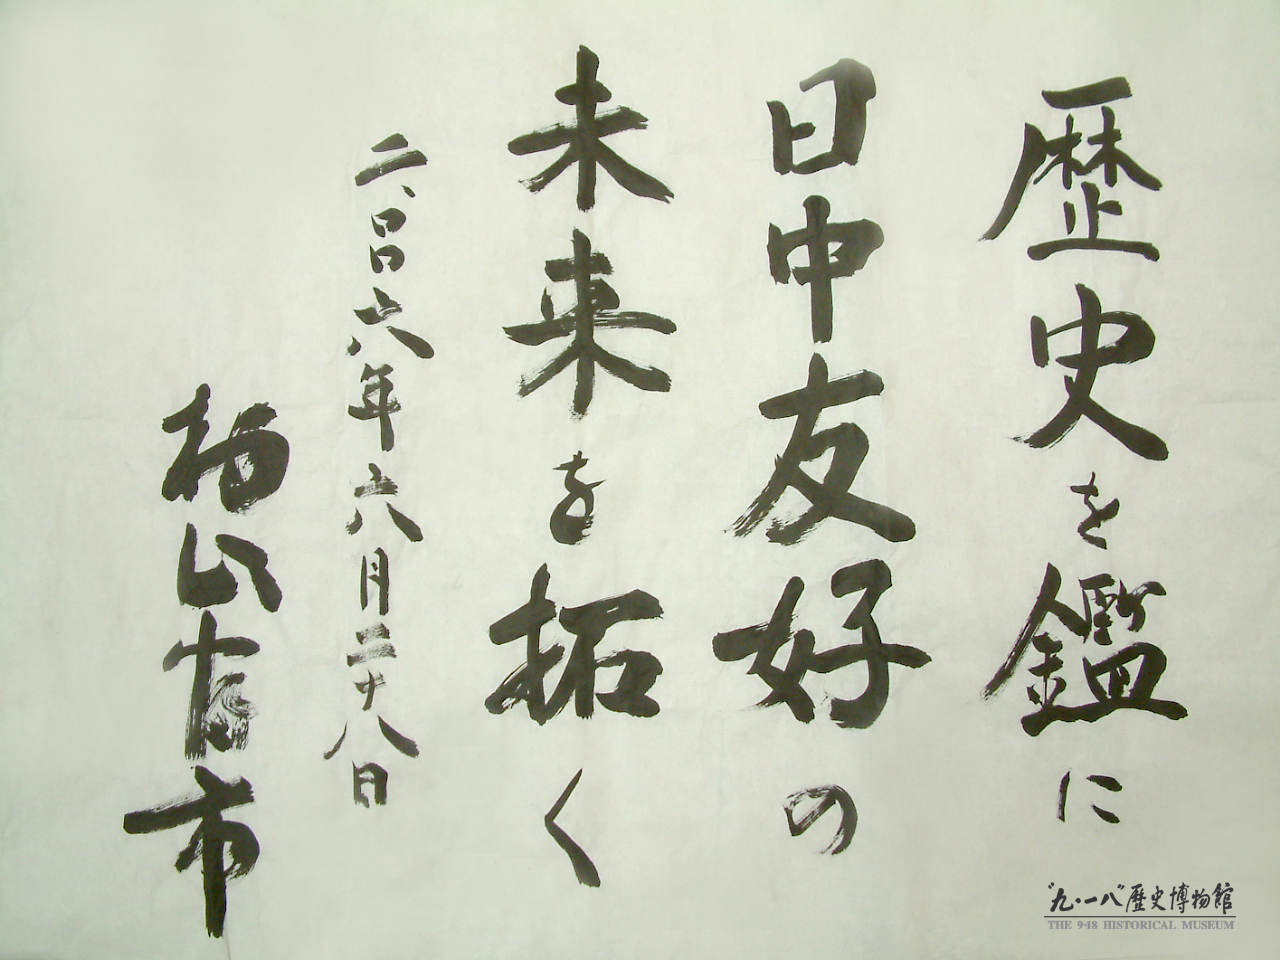 歴史を鑑に
日中友好の
未来を拓く
二〇〇六年六月二十八日
村山富市
"九·一八"歷史博物館
THE 9·18 HISTORICAL MUSEUM